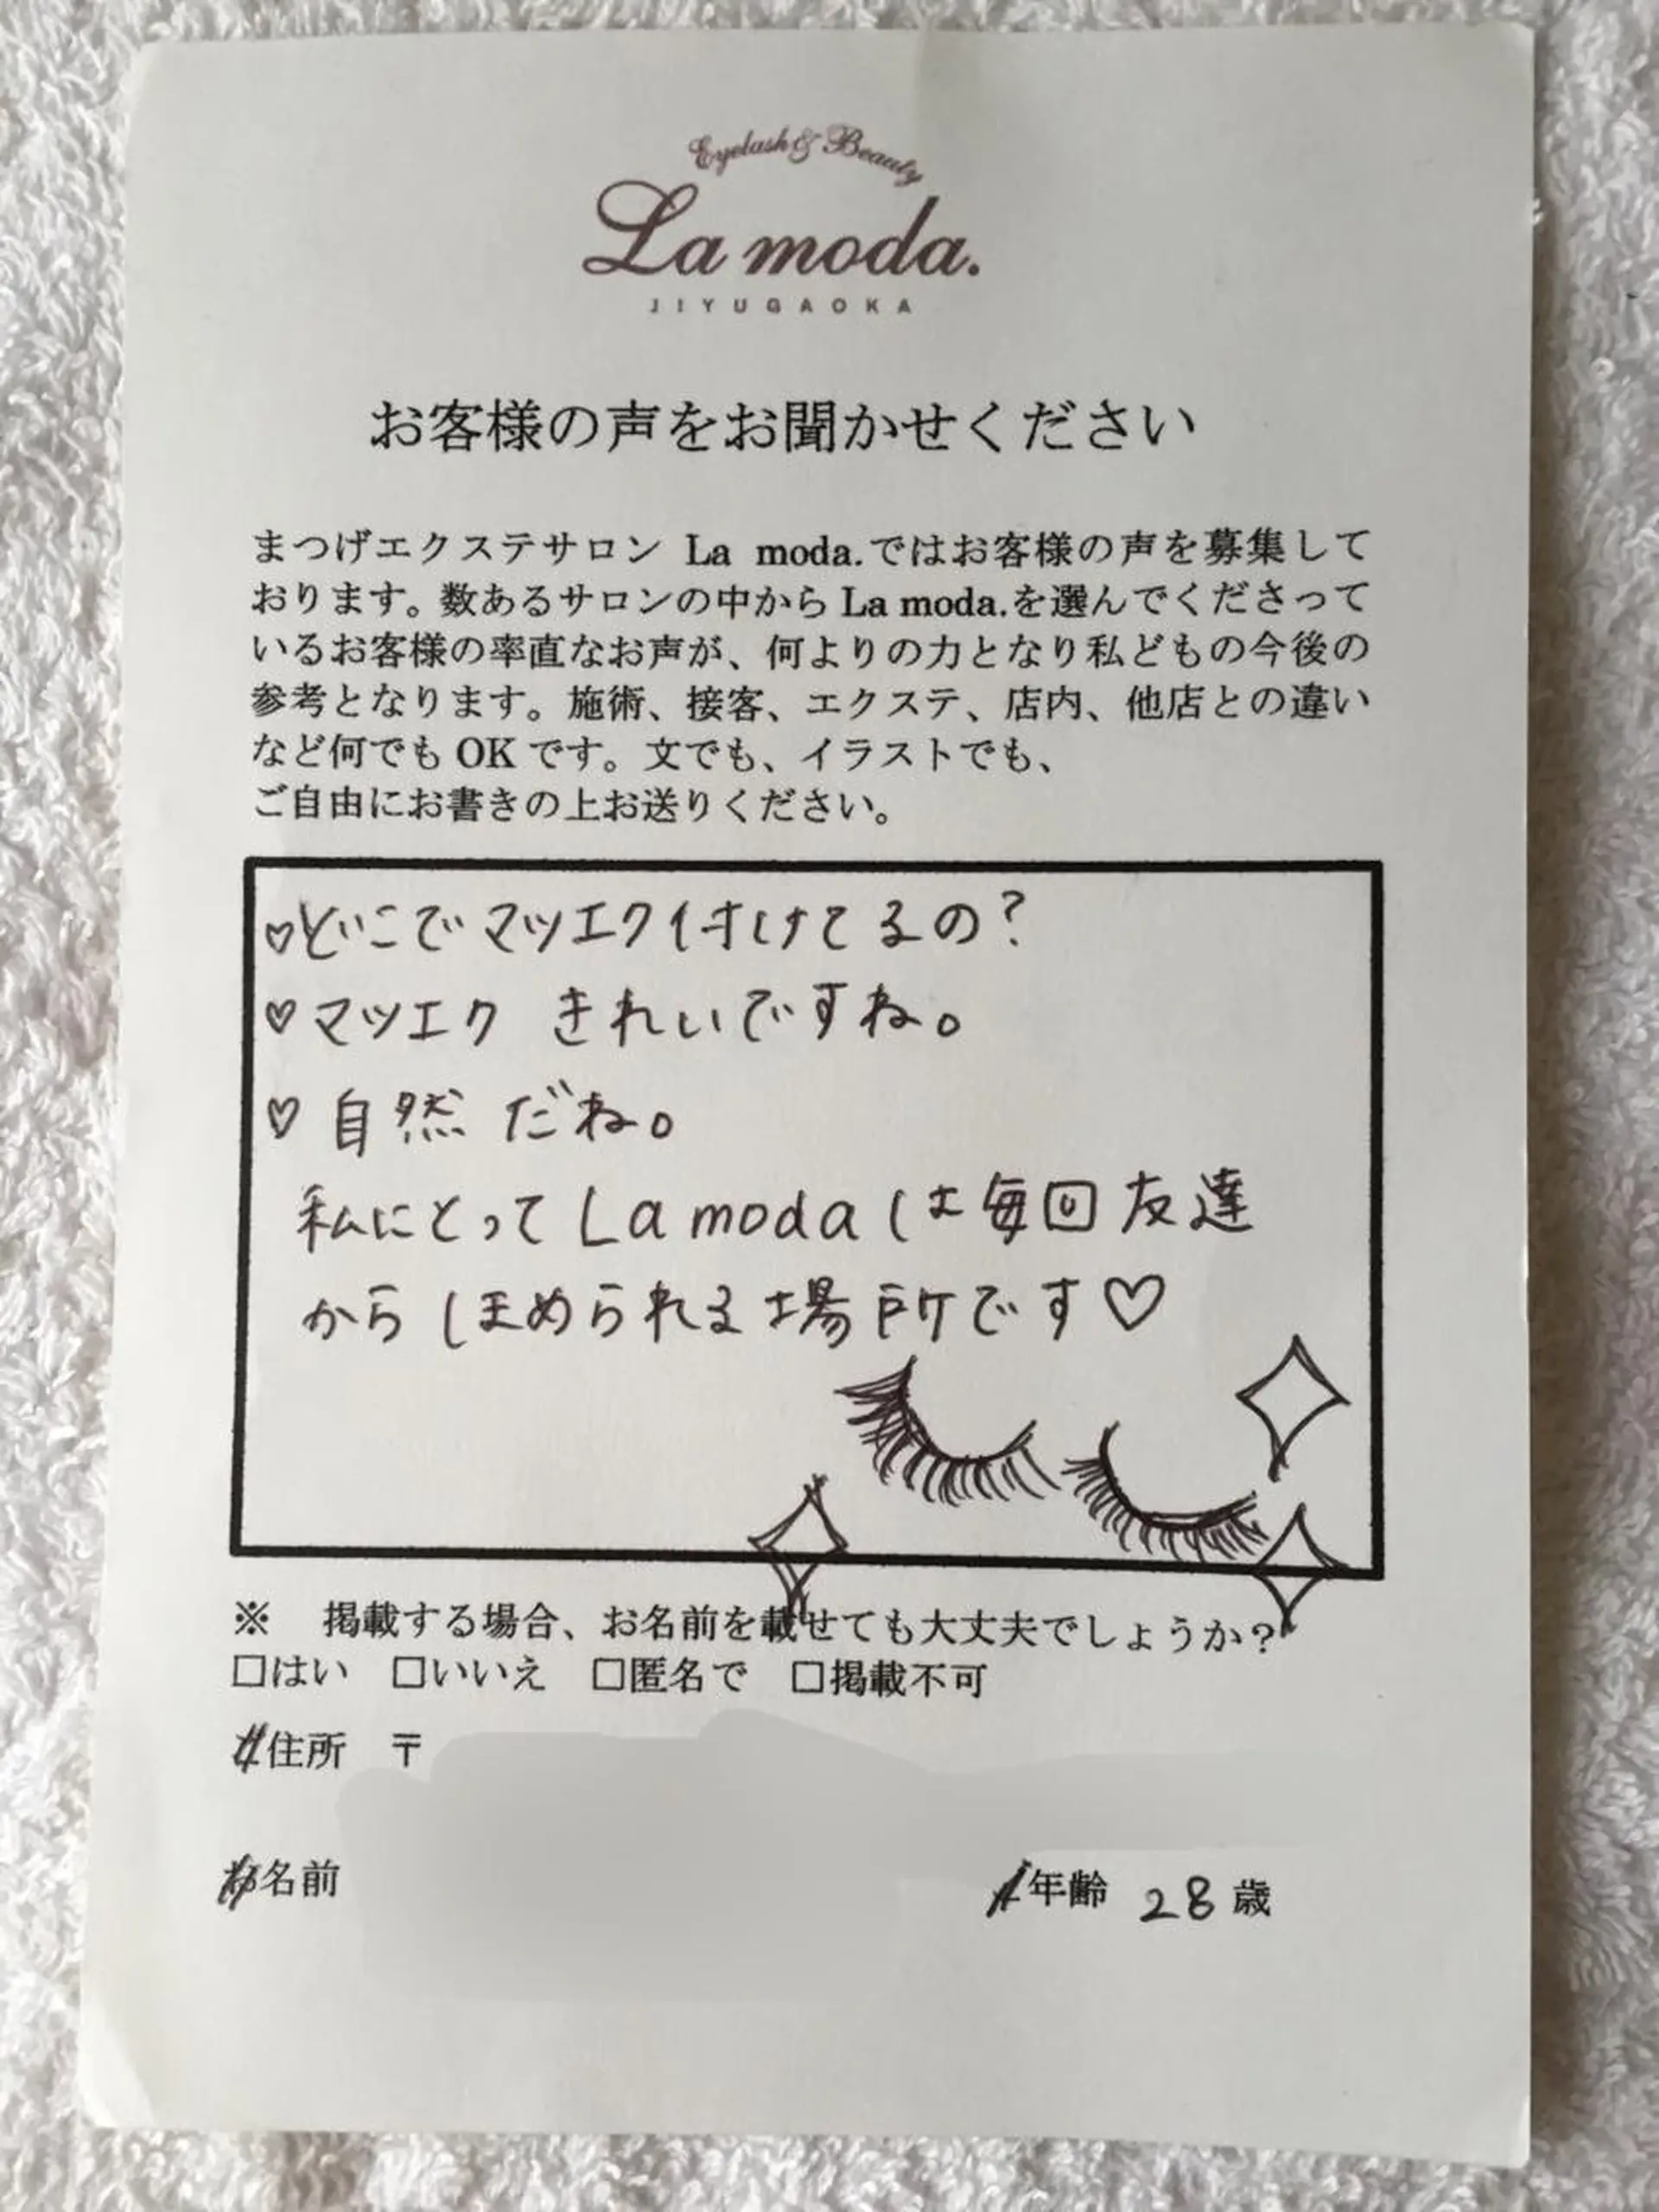 Eyelash & Beauty
La moda.
JIYUGAOKA
お客様の声をお聞かせください
まつげエクステサロン La moda.ではお客様の声を募集して
おります。数あるサロンの中から La moda.を選んでくださって
いるお客様の率直なお声が、何よりの力となり私どもの今後の
参考となります。施術、接客、エクステ、店内、他店との違い
など何でも OK です。文でも、イラストでも、
ご自由にお書きの上お送りください。
♡どこでマツエク付けてるの？
♡マツエク きれいですね。
♡自然だね。
私にとってLa modaは毎回友達
からほめられる場所です♡
※ 掲載する場合、お名前を載せても大丈夫でしょうか?
□はい □いいえ □匿名で □掲載不可
ご住所 〒
お名前
ご年齢 28歳